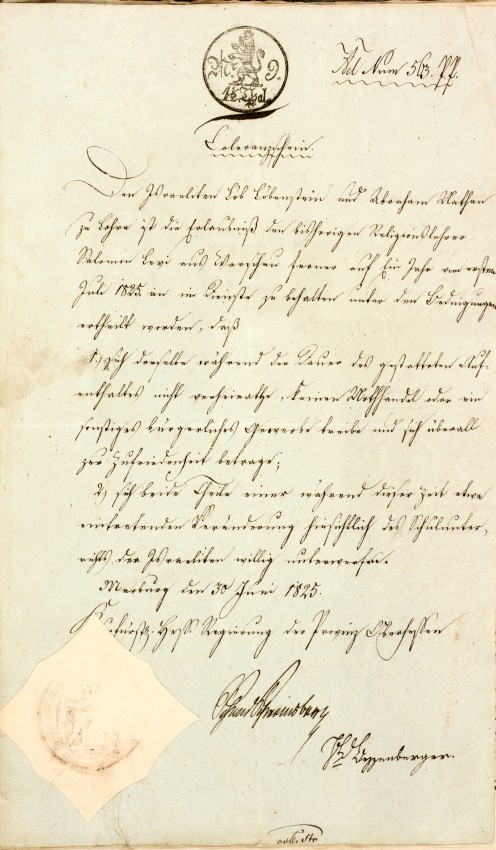 1/2 Thal.
Ad Num 563. P.P.
Toleranzschein.
Den Israeliten Löb Löbenstein und Abraham Nathan
zu Lohra ist die Erlaubniß den bisherigen Religionslehrer
Salomon Levi aus Warschau ferner auf Ein Jahr vom ersten
Juli 1825. an im Dienste zu behalten unter den Bedingungen
ertheilt worden, daß
1.) sich derselbe während der Dauer des gestatteten Auf-
enthaltes nicht verheirathe, keinen Nothhandel oder ein
sonstiges bürgerliches Gewerbe treibe und sich überall
zur Zufriedenheit betrage;
2.) sich beide Theile einer während dieser Zeit etwa
eintretenden Veränderung hinsichtlich des Schulunter-
richts der Israeliten willig unterwerfen.
Marburg den 30 Juni 1825.
Kurfürstl. Hess. Regierung der Provinz Oberhessen